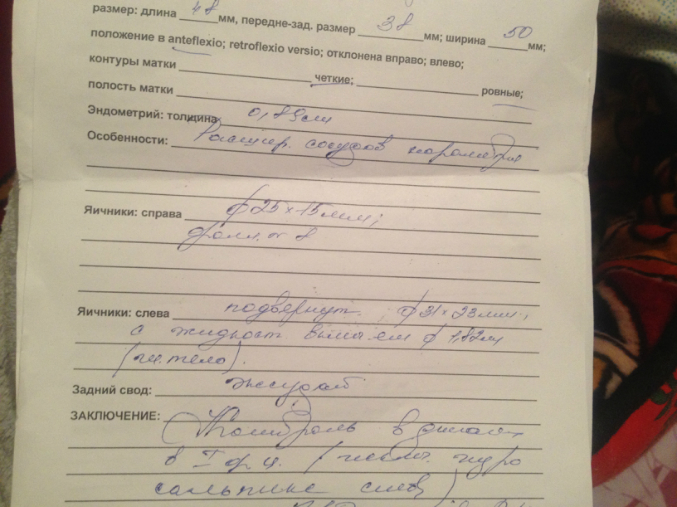 размер: длина 48 мм, передне-зад. размер 38 мм; ширина 50 мм;
положение в anteflexio; retroflexio versio; отклонена вправо; влево;
контуры матки четкие; ровные;
полость матки
Эндометрий: толщина 0,89см
Особенности: Расшир. сосудов параметрия
Яичники: справа ф 25 х 15 мм;
фолл. №8
Яичники: слева подвернут, ф 31 х 23 мм,
с жидкост ф 1,82см
(ж. тело).
Задний свод: экссудат
ЗАКЛЮЧЕНИЕ: Контроль в
в I ф. ц. гидро
сальпинкс слева)